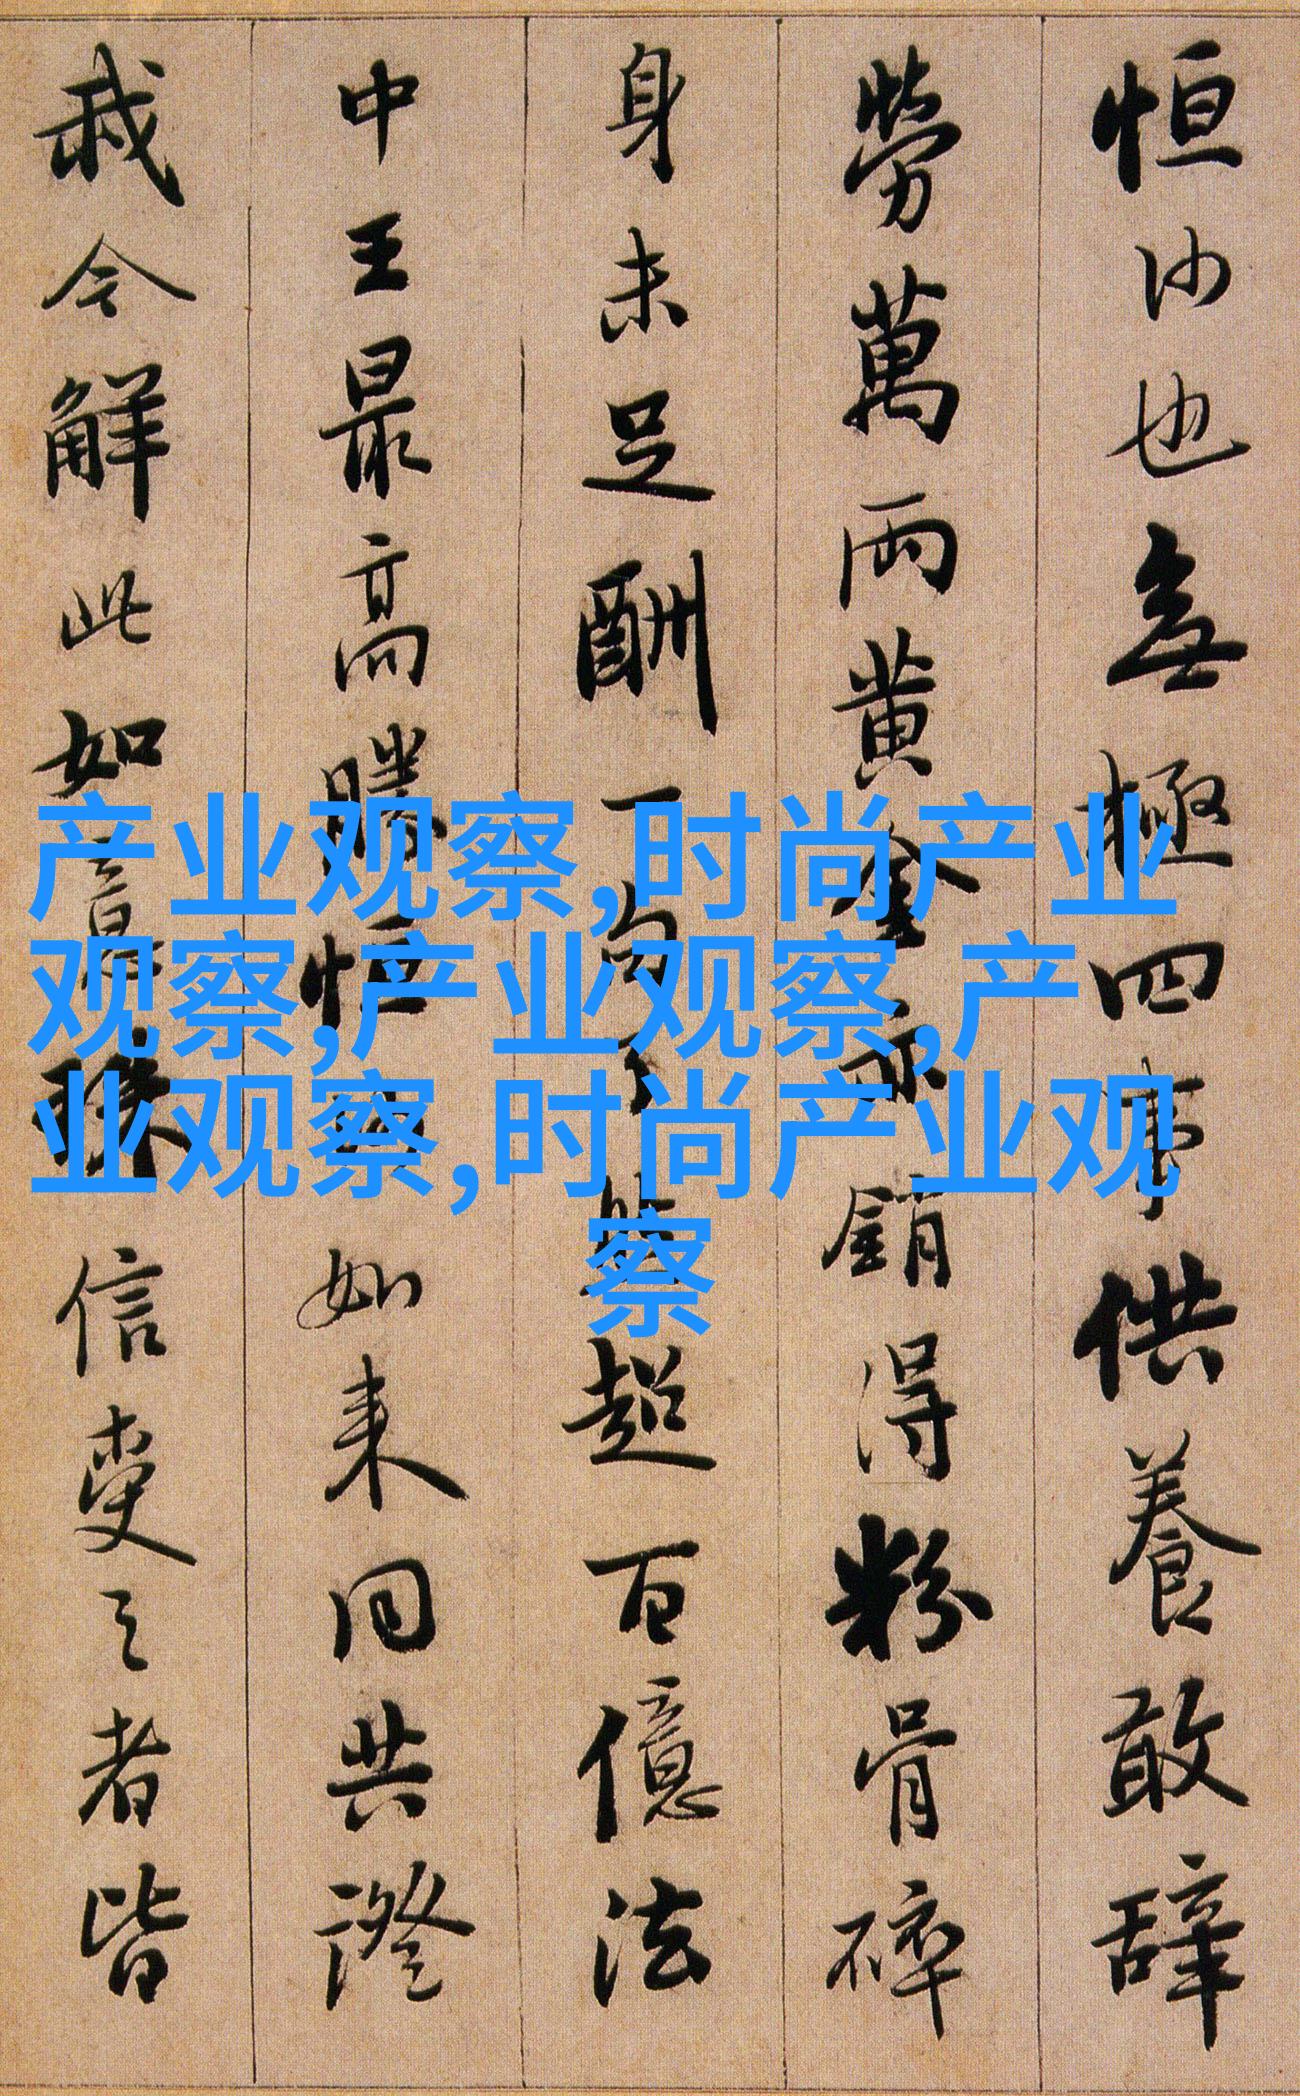 恒沙也無極四事供養敢辭
勞萬兩黃金亦銷得粉骨碎
身未足酬一句了然超百億法
中王最高勝恒沙如来同共證
我今解此如意珠信受之者皆
产业观察,时尚产业
观察,产业观察,产
业观察,时尚产业观
察